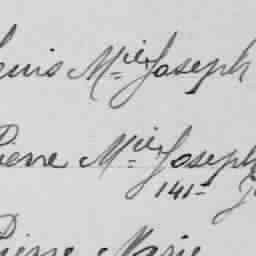 Louis Mie Joseph
Pierre Mie Joseph
141-
Pierre Marie